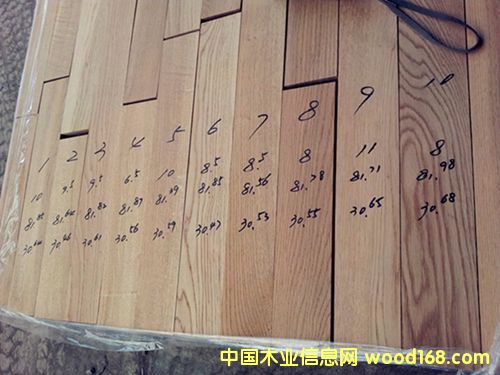 1 2 3 4 5 6 7 8 9 10
10 9.5 9.5 6.5 10 8.5 8.5 8 11 8
81.85 81.64 81.82 81.87 81.79 81.85 81.56 81.78 81.71 81.98
30.64 30.46 30.61 30.56 30.59 30.47 30.53 30.55 30.65 30.68
中国木业信息网 wood168.com